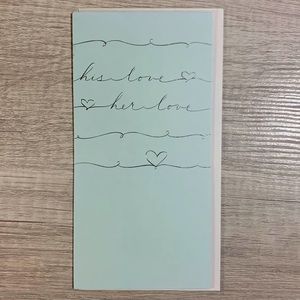 his love
her love